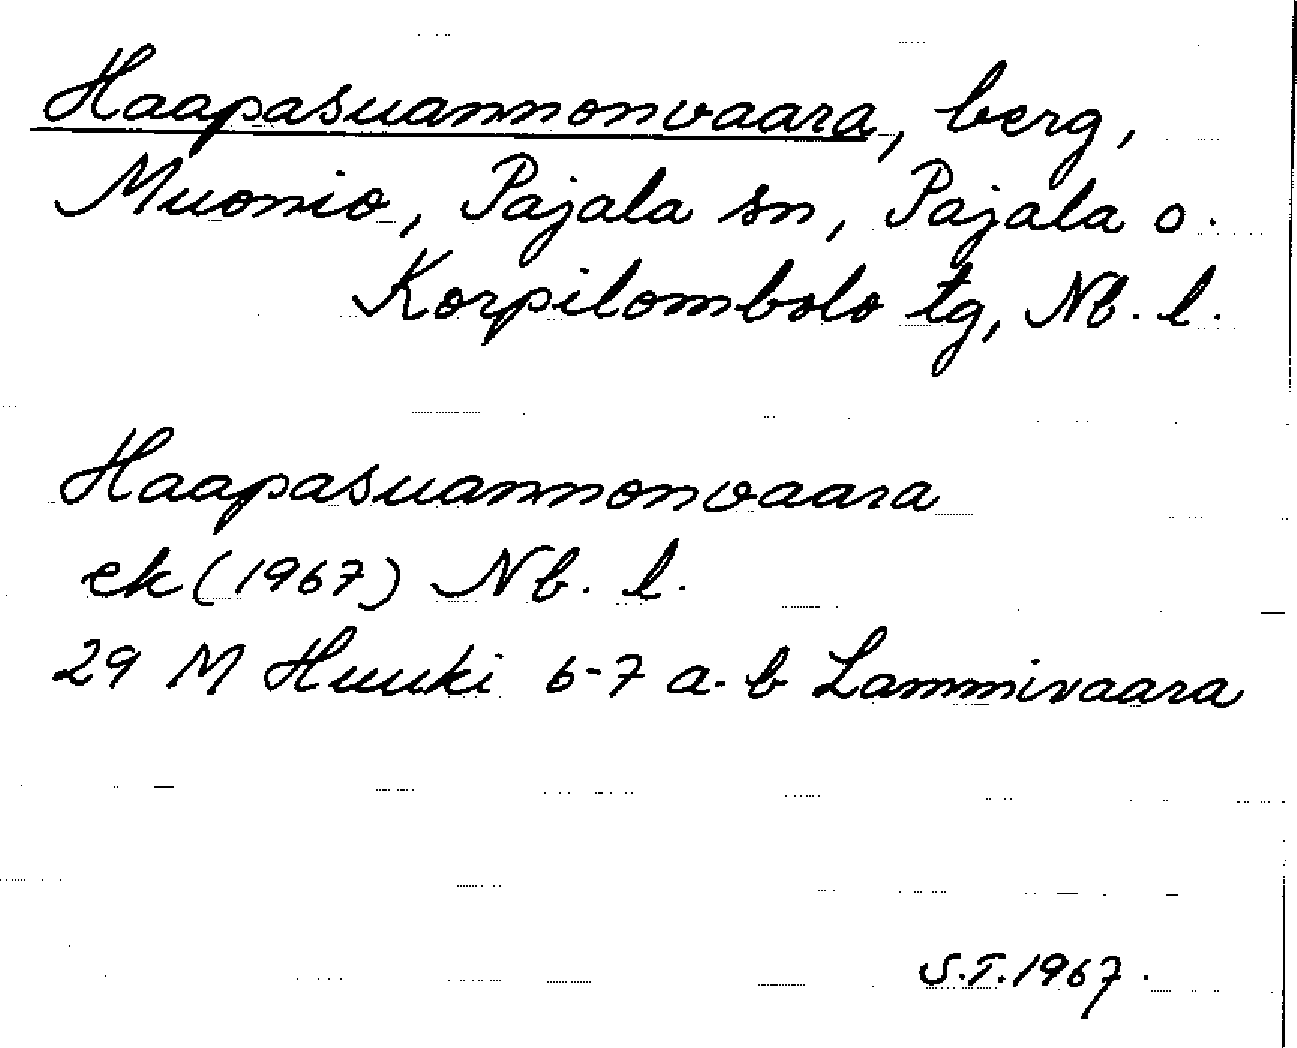 Haapasuannonvaara, berg,
Muonio, Pajala sn, Pajala o.
Korpilombolo tg, Nb. l.
Haapasuannonvaara
ek (1967) Nb. l.
29 M Huuki 6-7 a-b Lammivaara
S.T. 1967.